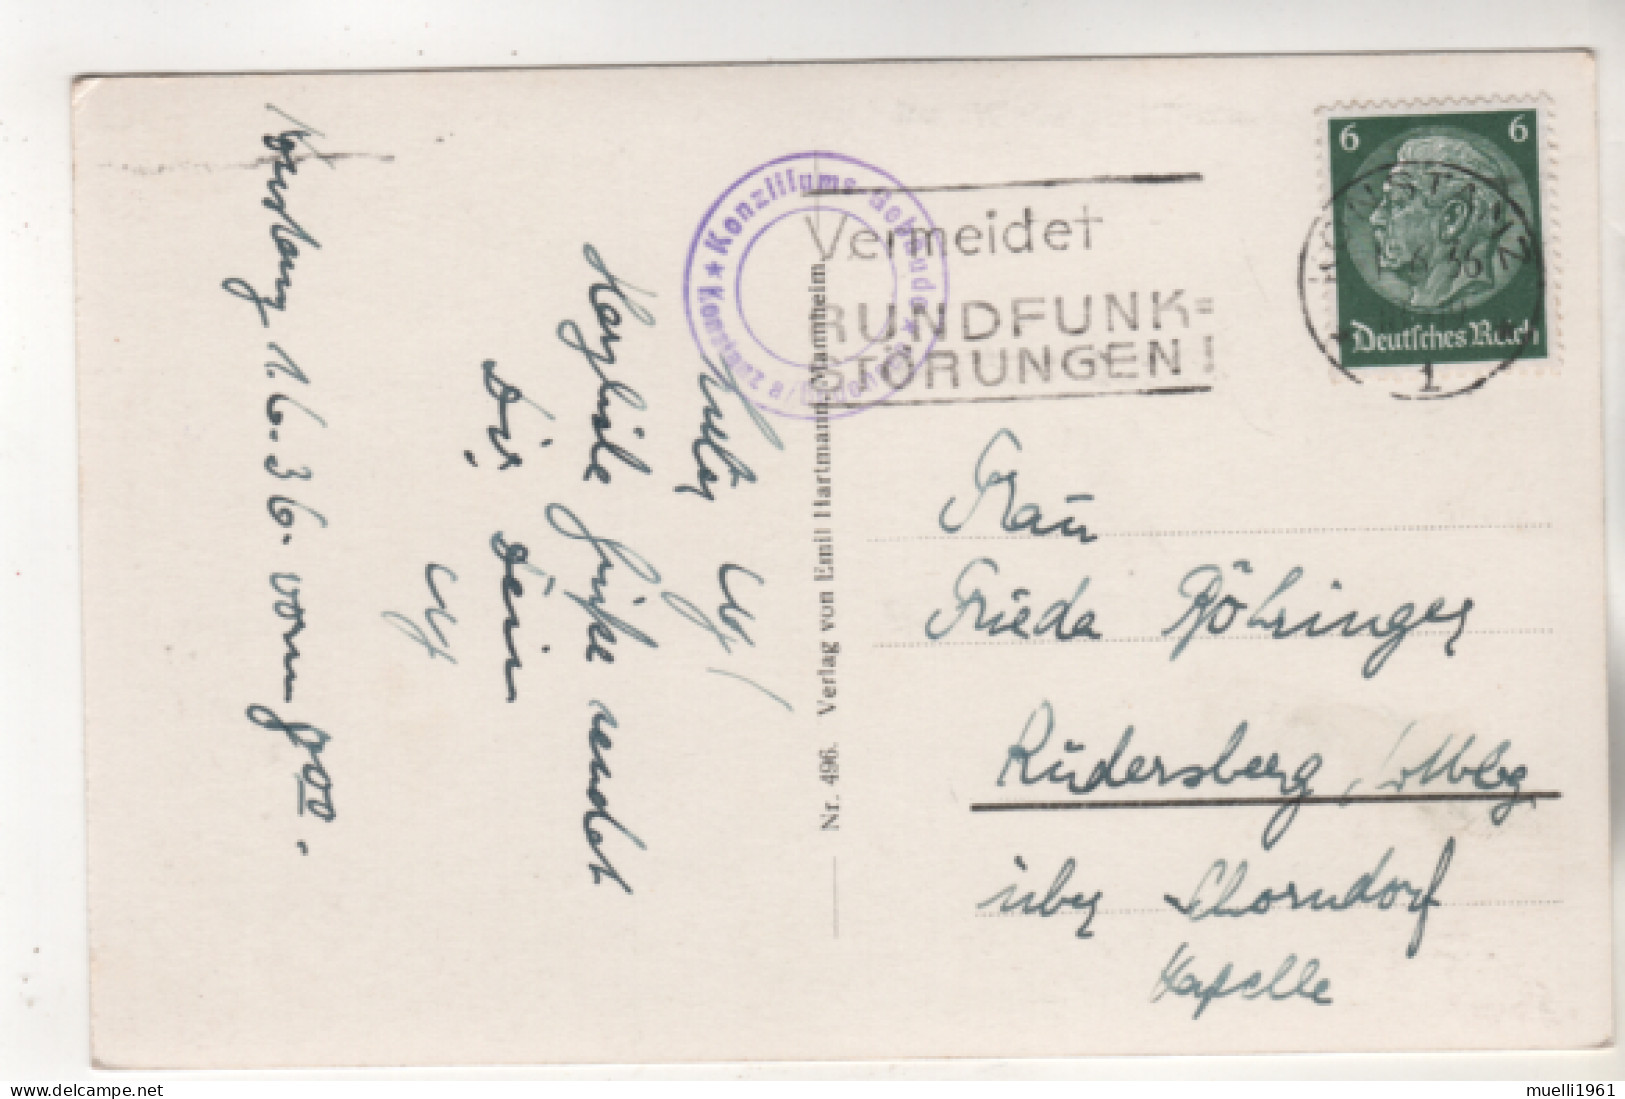 Konstanz 1.6.36. vorm
Herzliche Grüße sendet
Dir Dein
★ Konziliums-Gebäude ★
Konstanz a/Bodensee
Nr. 496. Verlag von Emil Hartmann, Mannheim.
Vermeidet
RUNDFUNK=
STÖRUNGEN!
6 6
Deutsches Reich
KONSTANZ
1.6.36
1
Frau
Frieda Röhringer
Rüdersberg / Wbg.
über Schorndorf
Kapelle
muelli1961